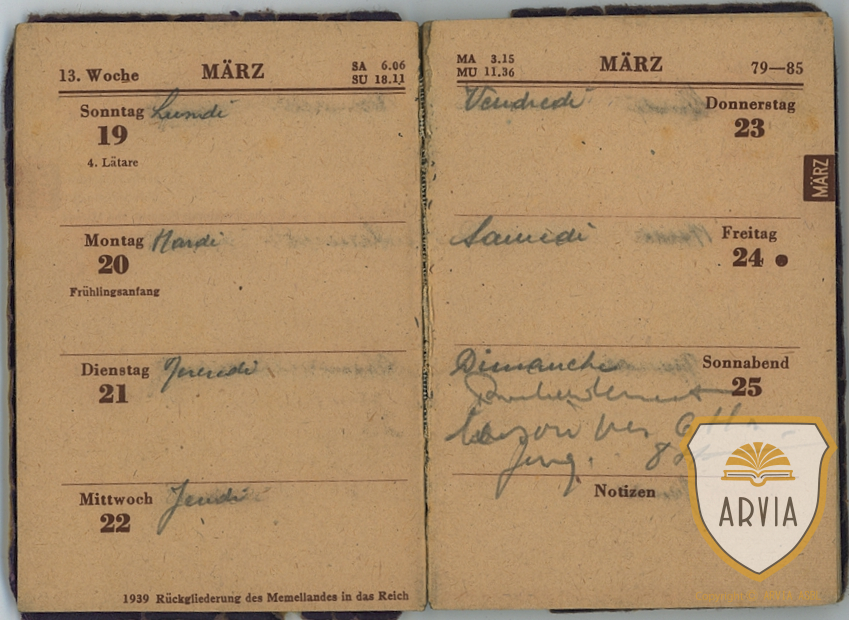 13. Woche MÄRZ SA 6.06
SU 18.11
Sonntag Lundi
19
4. Lätare
Montag Mardi
20
Frühlingsanfang
Dienstag
21
Mittwoch Jeudi
22
1939 Rückgliederung des Memellandes in das Reich
MA 3.15 MÄRZ 79—85
MU 11.36
Vendredi Donnerstag
23
MÄRZ
Samedi Freitag
24
Dimanche Sonnabend
25
Notizen
ARVIA